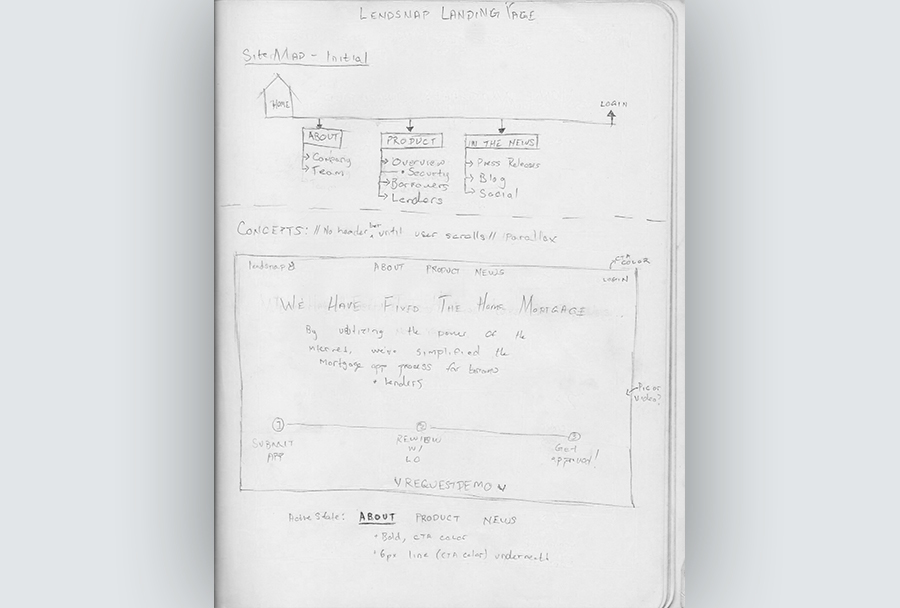 LENDSNAP LANDING PAGE
SITE MAP - Initial
HOME
LOGIN
ABOUT
Company
Team
PRODUCT
Overview
• Security
Borrowers
Lenders
IN THE NEWS
Press Releases
Blog
Social
CONCEPTS: // No header bar until user scrolls // Parallax
CTA COLOR
lendsnap
ABOUT PRODUCT NEWS
LOGIN
WE HAVE FIXED THE HOME MORTGAGE
By utilizing the power of the
internet, we've simplified the
Mortgage app process for
+ lenders
Pic or
video?
1
2
3
SUBMIT
APP
REVIEW
W/
LO
Get
approved!
REQUEST DEMO
Active State: ABOUT PRODUCT NEWS
• Bold, CTA color
• 6px line (CTA color) underneath